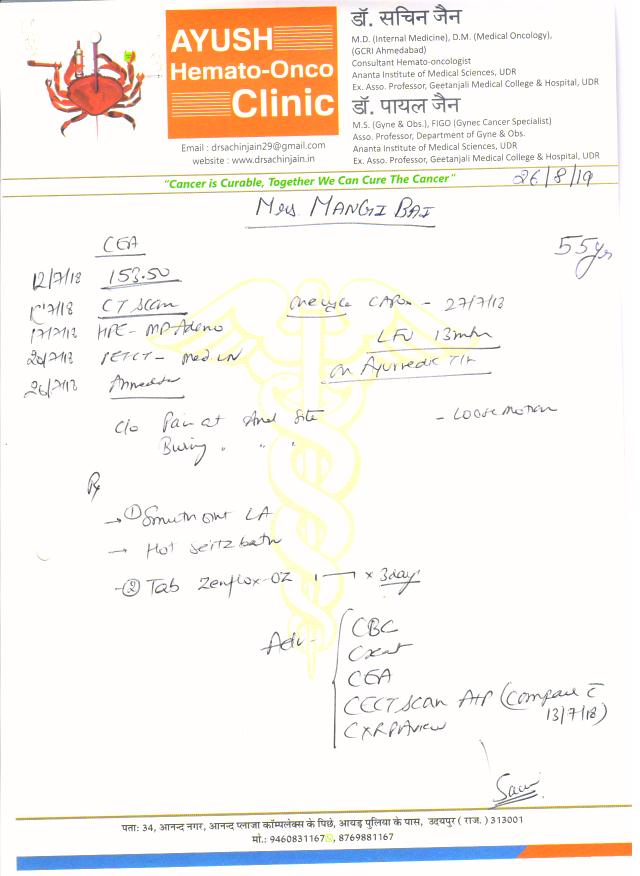 AYUSH
Hemato-Onco
Clinic
Email : drsachinjain29@gmail.com
website : www.drsachinjain.in
डॉ. सचिन जैन
M.D. (Internal Medicine), D.M. (Medical Oncology),
(GCRI Ahmedabad)
Consultant Hemato-oncologist
Ananta Institute of Medical Sciences, UDR
Ex. Asso. Professor, Geetanjali Medical College & Hospital, UDR
डॉ. पायल जैन
M.S. (Gyne & Obs.), FIGO (Gynec Cancer Specialist)
Asso. Professor, Department of Gyne & Obs.
Ananta Institute of Medical Sciences, UDR
Ex. Asso. Professor, Geetanjali Medical College & Hospital, UDR
"Cancer is Curable, Together We Can Cure The Cancer"
26/8/19
Mrs. MANGI BAI
55yr
CEA
12/7/18 153.50
CT Scan
17/7/18 HPE - MP Adeno
PETCT - Med LN
One cycle CAPOx - 27/7/18
LFU 13mth
on Ayurvedic T/t
c/o Pain at Anal Site
Buring " " "
- Loose motion
Rx
→ ① Smuth oint LA
→ Hot seitz bath
- ② Tab Zenflox-OZ 1 — × 3day
Adv -
CBC
Creat
CEA
CECT Scan A+P (Compare c̄ 13/7/18)
CXR PA view
पता: 34, आनन्द नगर, आनन्द प्लाजा कॉम्पलेक्स के पिछे, आयड़ पुलिया के पास, उदयपुर ( राज. ) 313001
मो.: 9460831167, 8769881167